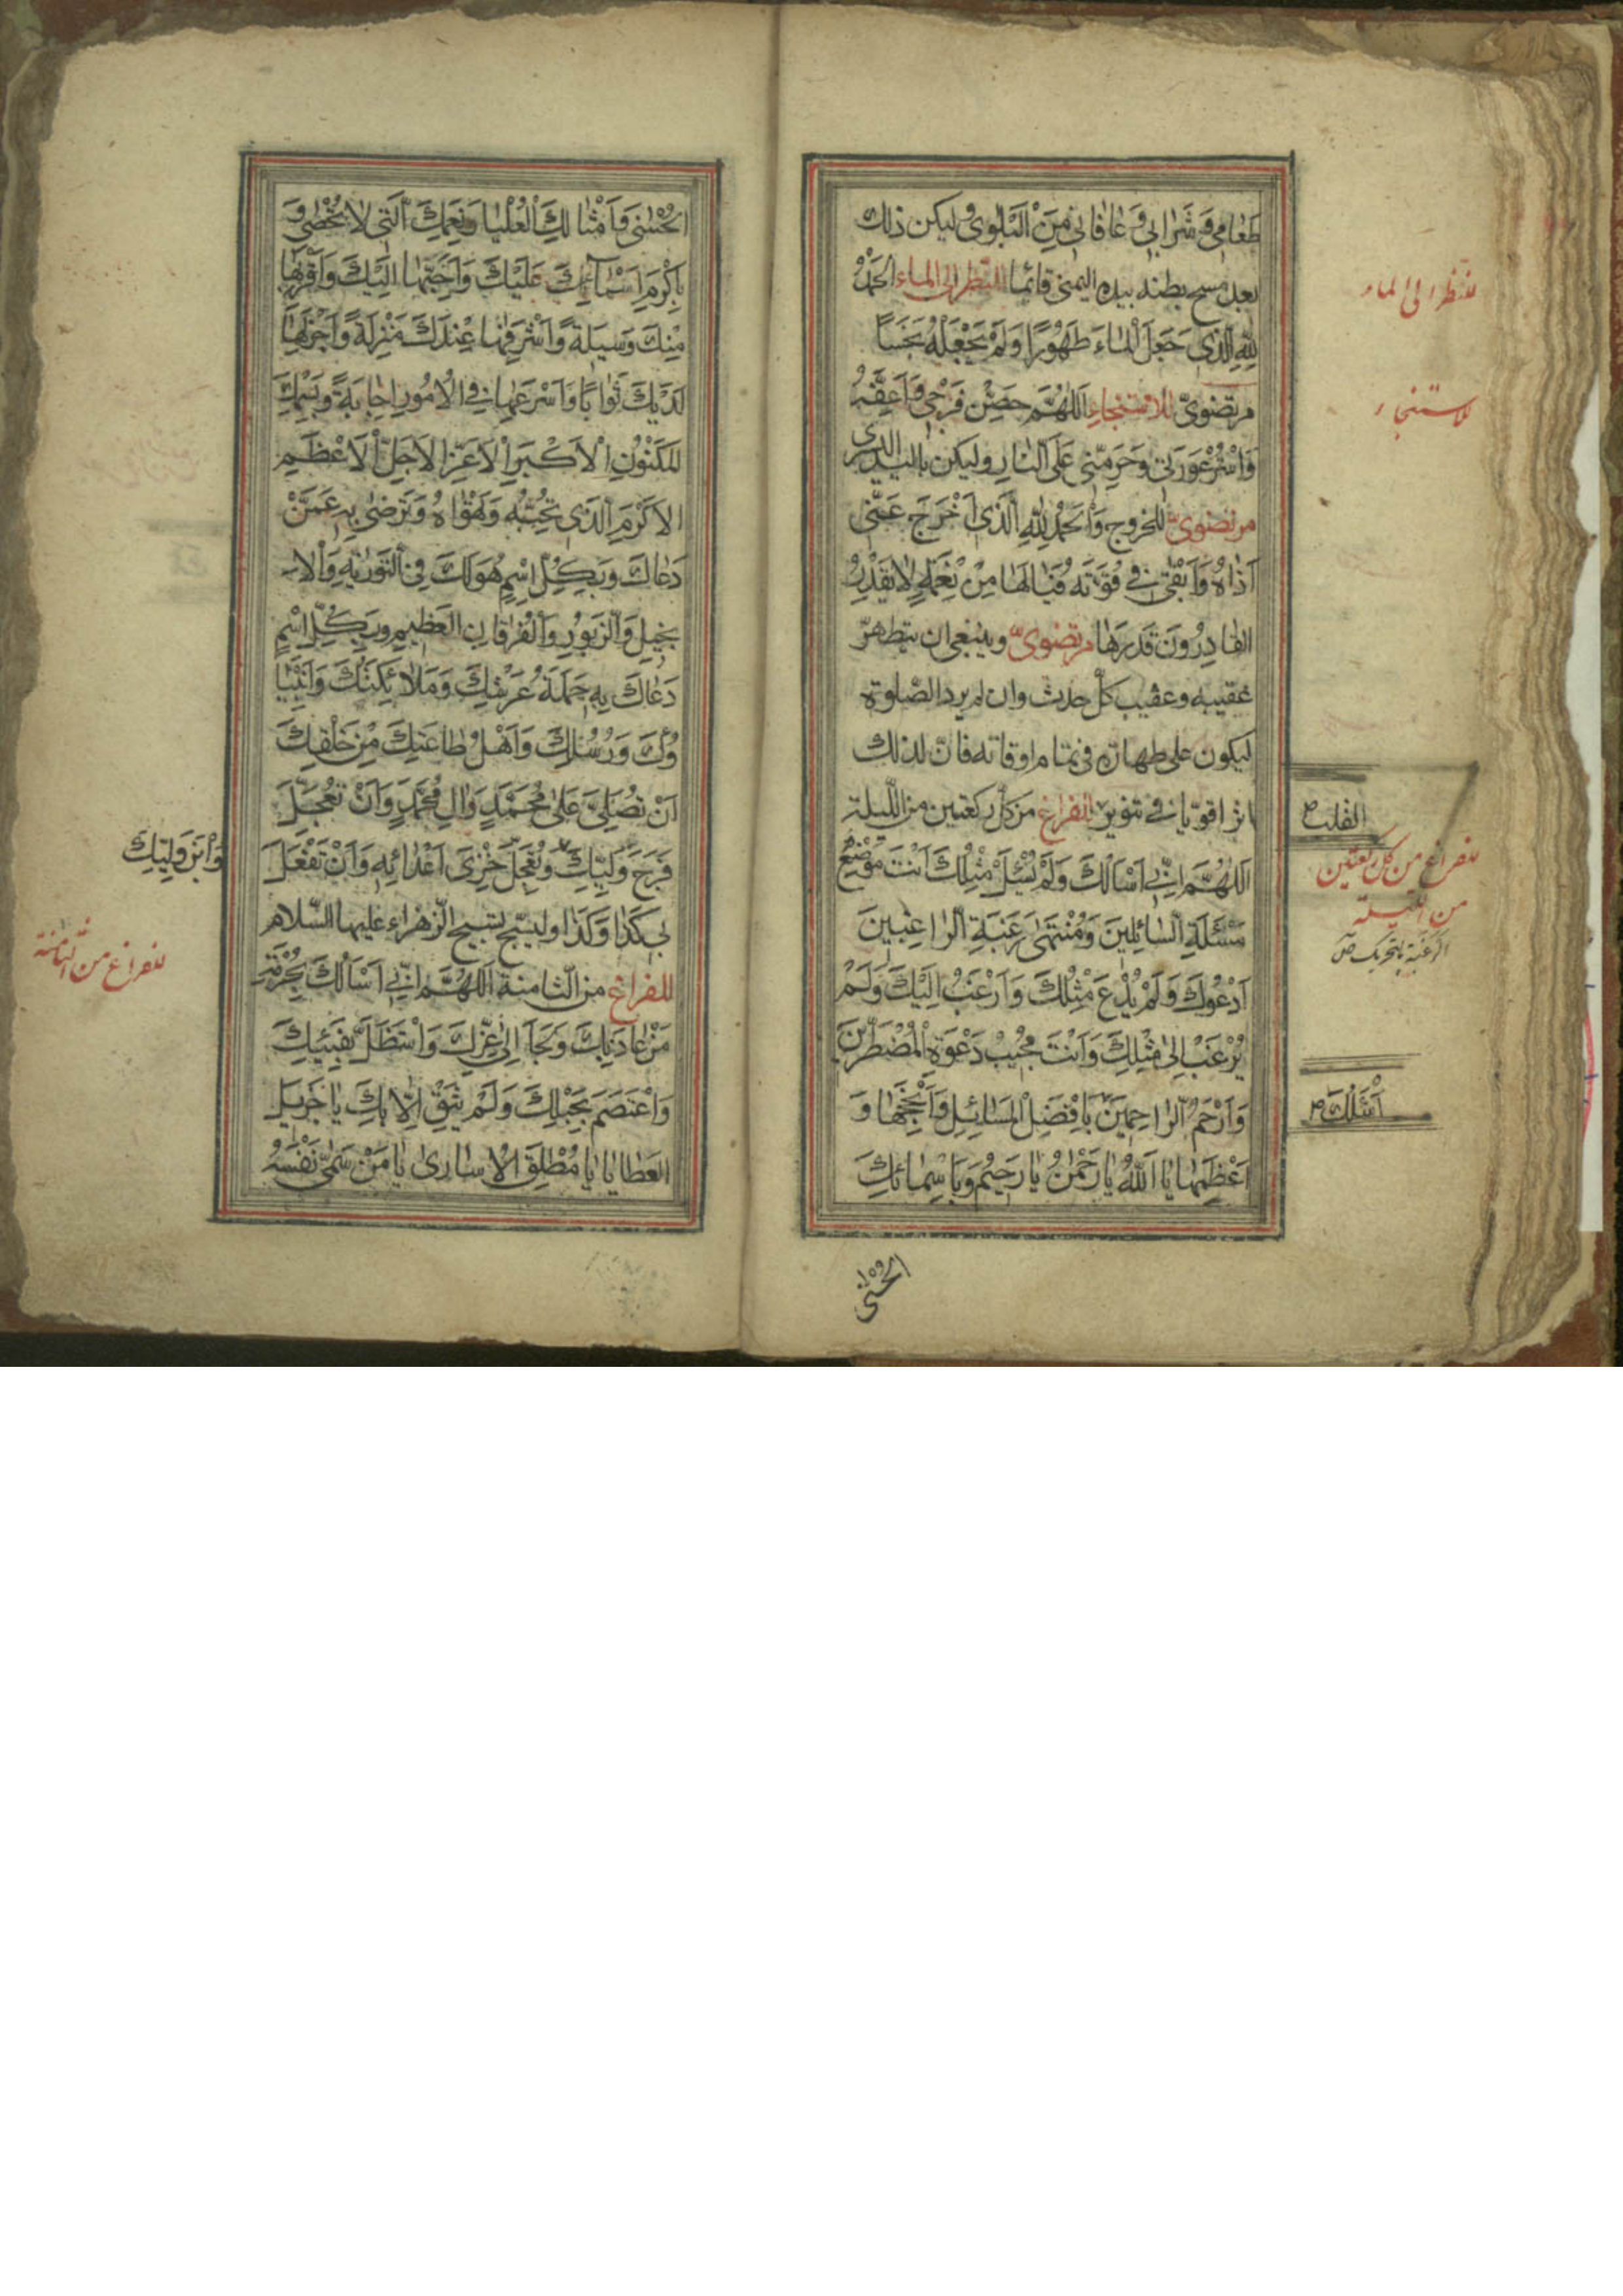 طَعٰامِي وَشَرٰابِي وَعٰافٰانِي مِنَ الْبَلْوىٰ وليكن ذلك
بعد مسح بطنه بيده اليمنى قائما للنظر الى الماء الحَمْدُ
لِلّٰهِ الَّذِي جَعَلَ الْمٰاءَ طَهُورًا وَلَمْ يَجْعَلْهُ نَجَسًا
مرتضوىّ للاستنجاء اَللّٰهُمَّ حَصِّنْ فَرْجِي وَاَعِفَّهُ
وَاسْتُرْ عَوْرَتِي وَحَرِّمْنِي عَلَى النّٰارِ وليكن باليد اليسرى
مرتضوىّ للخروج وَالْحَمْدُ لِلّٰهِ الَّذِي اَخْرَجَ عَنِّي
اَذٰاهُ وَاَبْقىٰ فِي قُوَّتَهُ فَيٰالَهٰا مِنْ نِعْمَةٍ لٰا يَقْدِرُ
القٰادِرُونَ قَدْرَهٰا مرتضوىّ وينبغى ان يتطهرّ
عقيبه وعقيب كلّ حدث وان لم يرد الصّلوة
ليكون على طهارة فى تمام اوقاته فانّ لذلك
اثرا قويّا فى تنوير للفراغ من كل ركعتين من اللّيلة
اَللّٰهُمَّ اِنِّي اَسْاَلُكَ وَلَمْ يُسْئَلْ مِثْلُكَ اَنْتَ مَوْضِعُ
مَسْئَلَةِ السّٰائِلِينَ وَمُنْتَهىٰ رَغَبَةِ الرّٰاغِبِينَ
اَدْعُوكَ وَلَمْ يُدْعَ مِثْلُكَ وَاَرْغَبُ اِلَيْكَ وَلَمْ
يُرْغَبْ اِلىٰ مِثْلِكَ وَاَنْتَ مُجِيبُ دَعْوَةِ الْمُضْطَرِّينَ
وَاَرْحَمُ الرّٰاحِمِينَ بِاَفْضَلِ الْمَسٰائِلِ وَاَنْجَحِهٰا وَ
اَعْظَمِهٰا يٰا اَللّٰهُ يٰا رَحْمٰنُ يٰا رَحِيمُ وَبِاَسْمٰائِكَ
الحُسْنىٰ
للنظر الى الماء
للاستنجاء
القلب
للفراغ من كل ركعتين
من الليلة
الرغبة بالتحريك ص
اَسْئَلُكَ
الحُسْنىٰ وَاَمْثٰالِكَ الْعُلْيٰا وَنِعَمِكَ الَّتِي لٰا تُحْصىٰ وَ
بِاَكْرَمِ اَسْمٰائِكَ عَلَيْكَ وَاَحَبِّهٰا اِلَيْكَ وَاَقْرَبِهٰا
مِنْكَ وَسِيلَةً وَاَشْرَفِهٰا عِنْدَكَ مَنْزِلَةً وَاَجْزَلِهٰا
لَدَيْكَ ثَوٰابًا وَاَسْرَعِهٰا فِي الْاُمُورِ اِجٰابَةً وَبِاسْمِكَ
المَكْنُونِ الْاَكْبَرِ الْاَعَزِّ الْاَجَلِّ الْاَعْظَمِ
الاَكْرَمِ الَّذِي تُحِبُّهُ وَتَهْوٰاهُ وَتَرْضىٰ بِهِ عَمَّنْ
دَعٰاكَ وَبِكُلِّ اسْمٍ هُوَ لَكَ فِي التَّوْرٰيةِ وَالْاِ
نجِيلِ وَالزَّبُورِ وَالْفُرْقٰانِ العَظِيمِ وَبِكُلِّ اسْمٍ
دَعٰاكَ بِهِ حَمَلَةُ عَرْشِكَ وَمَلٰائِكَتُكَ وَاَنْبِيٰا
ؤُكَ وَرُسُلُكَ وَاَهْلُ طٰاعَتِكَ مِنْ خَلْقِكَ
اَنْ تُصَلِّيَ عَلىٰ مُحَمَّدٍ وَاٰلِ مُحَمَّدٍ وَاَنْ تُعَجِّلَ
فَرَجَ وَلِيِّكَ وَتُعَجِّلَ خِزْيَ اَعْدٰائِهِ وَاَنْ تَفْعَلَ
بِي كَذٰا وَكَذٰا وليسبّح تسبيح الزّهراء عليها السّلام
للفراغ من الثامنة اَللّٰهُمَّ اِنِّي اَسْاَلُكَ بِحُرْمَةِ
مَنْ عٰاذَ بِكَ وَلَجَاَ اِلىٰ عِزِّكَ وَاسْتَظَلَّ بِفَيْئِكَ
وَاعْتَصَمَ بِحَبْلِكَ وَلَمْ يَثِقْ اِلّٰا بِكَ يٰا جَزِيلَ
العَطٰايٰا يٰا مُطْلِقَ الْاُسٰارىٰ يٰا مَنْ سَمّىٰ نَفْسَهُ
وَابْنِ وَلِيِّكَ
للفراغ من الثامنة